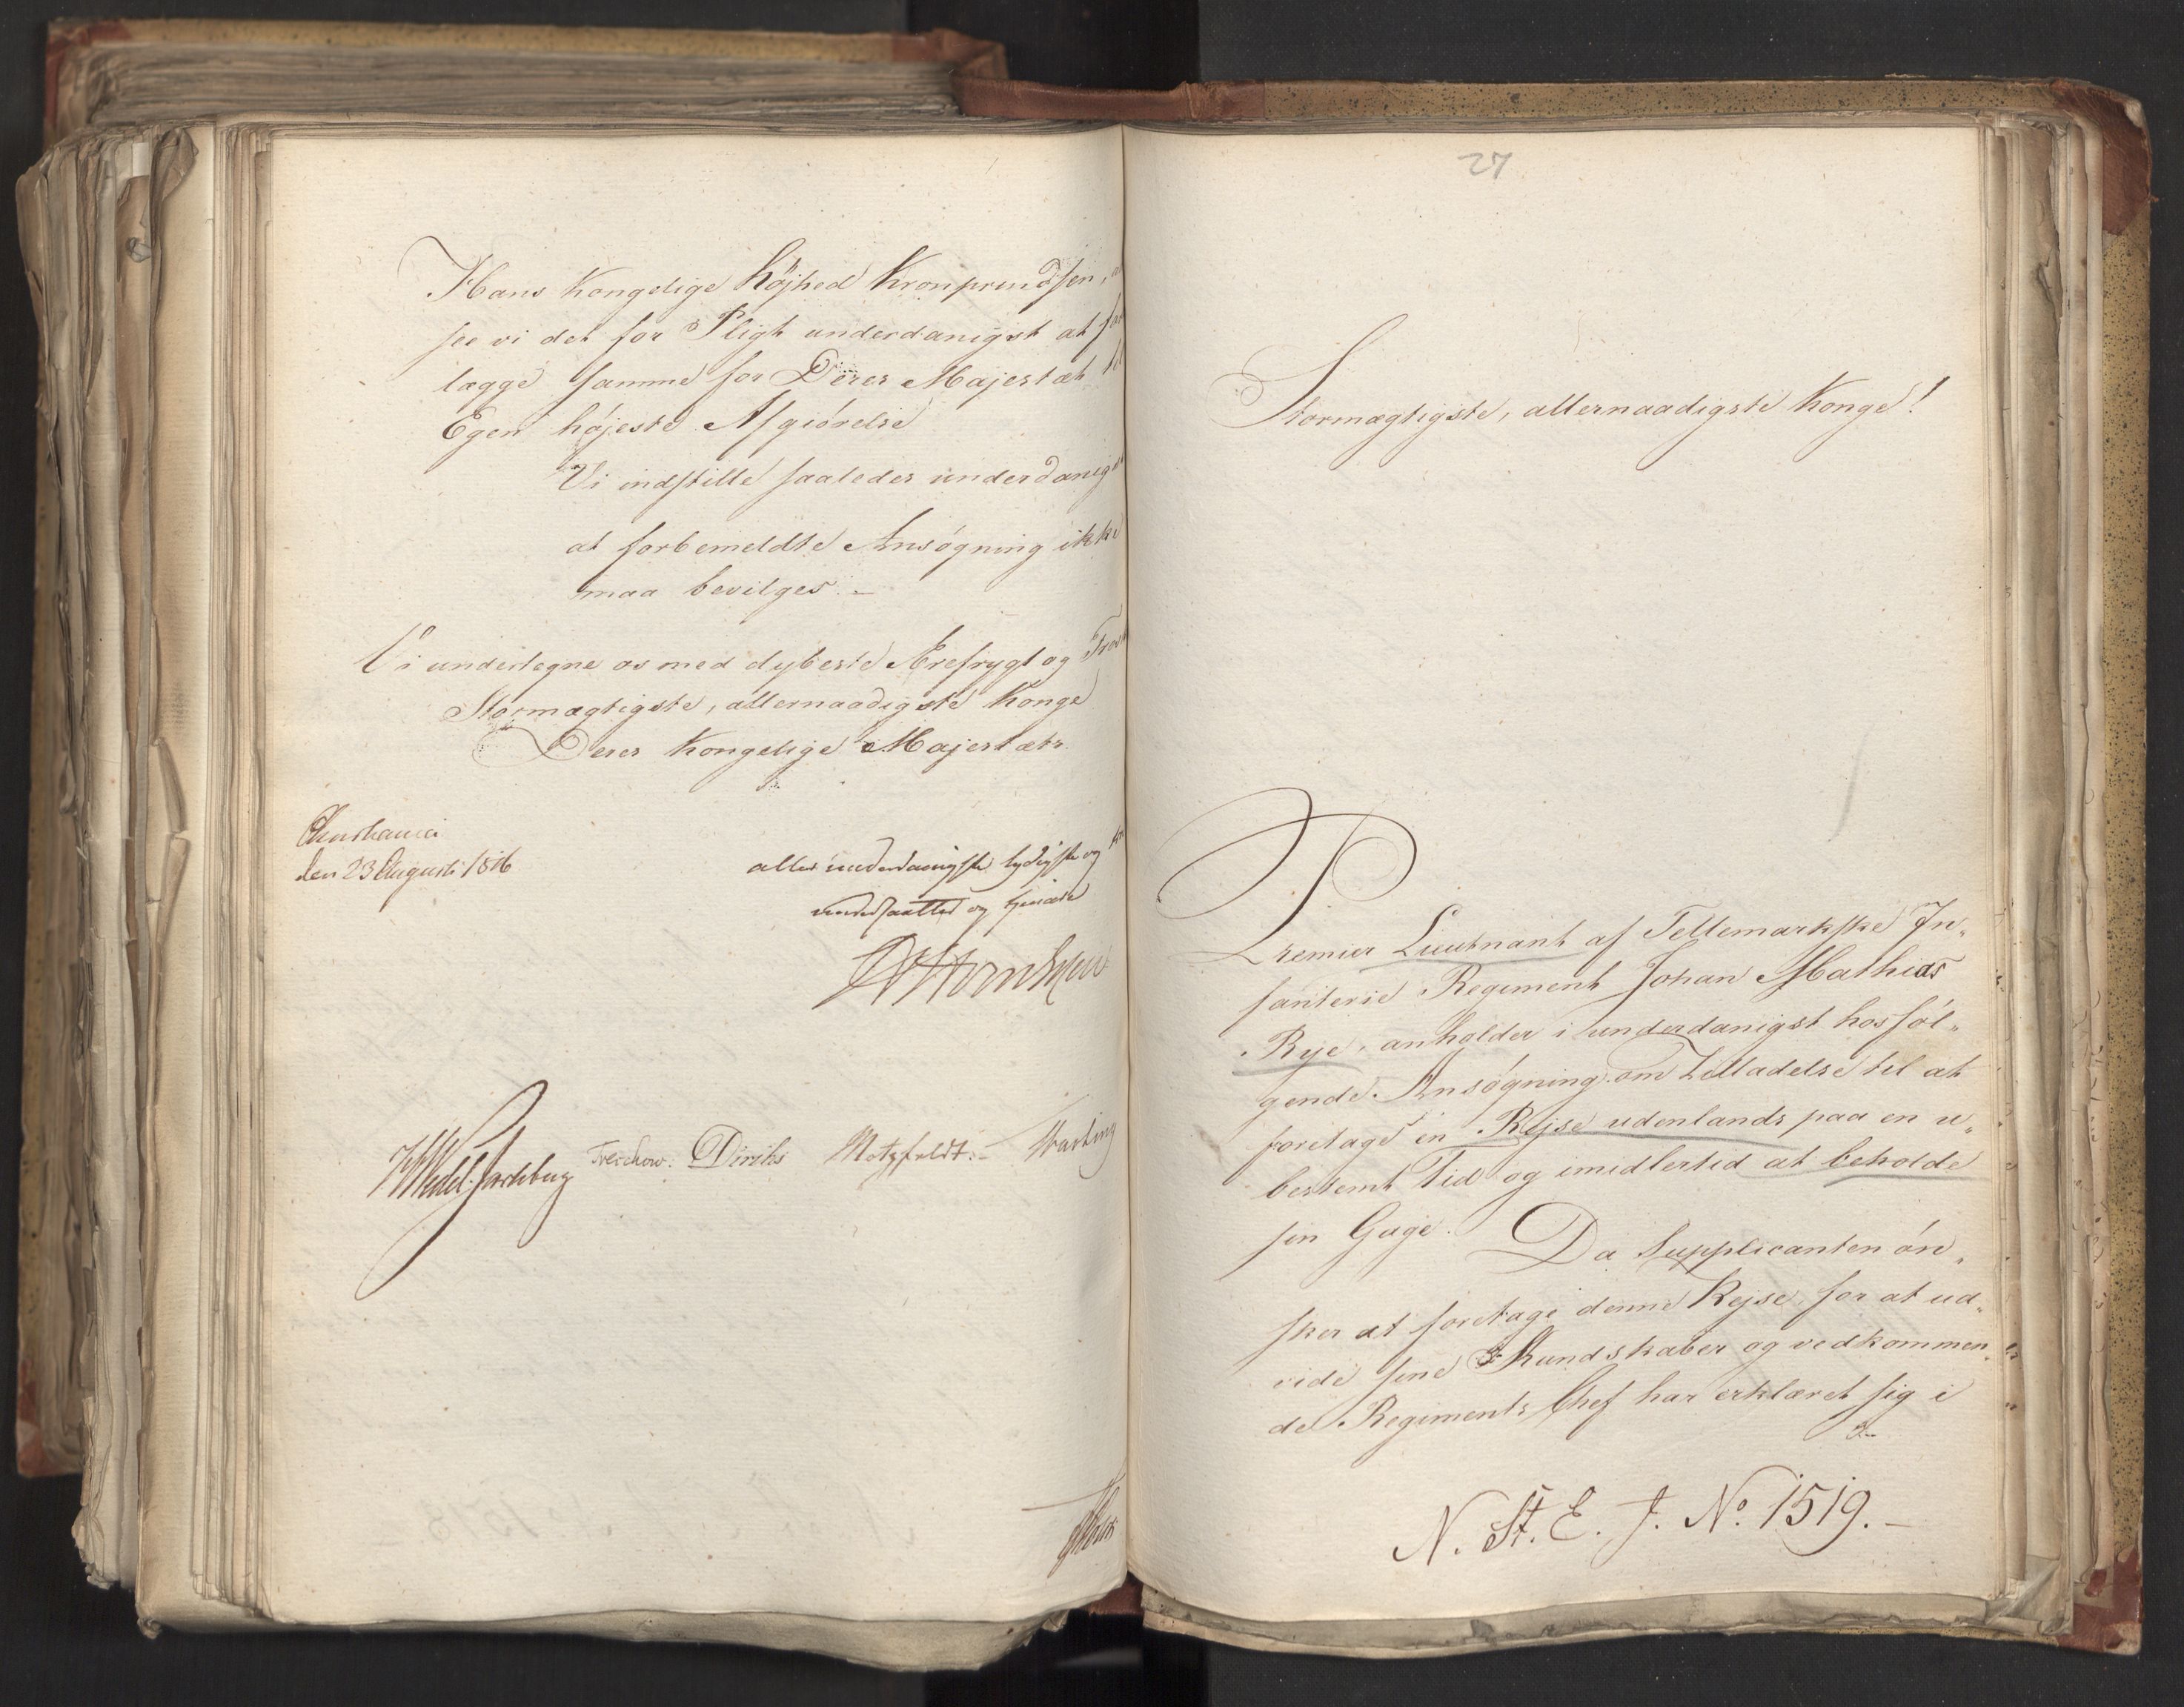 Hans Kongelige Höjhed Kronprindsen,
see vi det for Pligt underdanigst at
lægge samme for Deres Majestæt til
Egen höjeste Afgiörelse
Vi indstille saaledes underdanigst
at forbemeldte Ansögning ikke
maa bevilges. –
Vi undertegne os med dybeste Ærefrygt og
Stormægtigste, allernaadigste Konge
Deres Kongelige Majestæts
Christiania
den 23 August 1816
allerunderdanigste lydigste og
undersaatter og tjenere
Wedel Jarlsberg Treschow. Diriks Motzfeldt. –
27
Stormægtigste, allernaadigste Konge!
Premier Lieutnant af Tellemarkske In„
fanterie Regiment Johan Mathias
Rye, anholder i underdanigst hosföl„
gende Ansögning om Tilladelse til at
foretage en Rejse udenlands paa en u„
bestemt Tid og imidlertid at beholde
sin Gage. Da Supplicanten ön„
sker at foretage denne Rejse for at ud„
vide sine Kundskaber og vedkommen„
de Regiments Chef har erklæret sig i
N. St. E. J. No. 1519. –